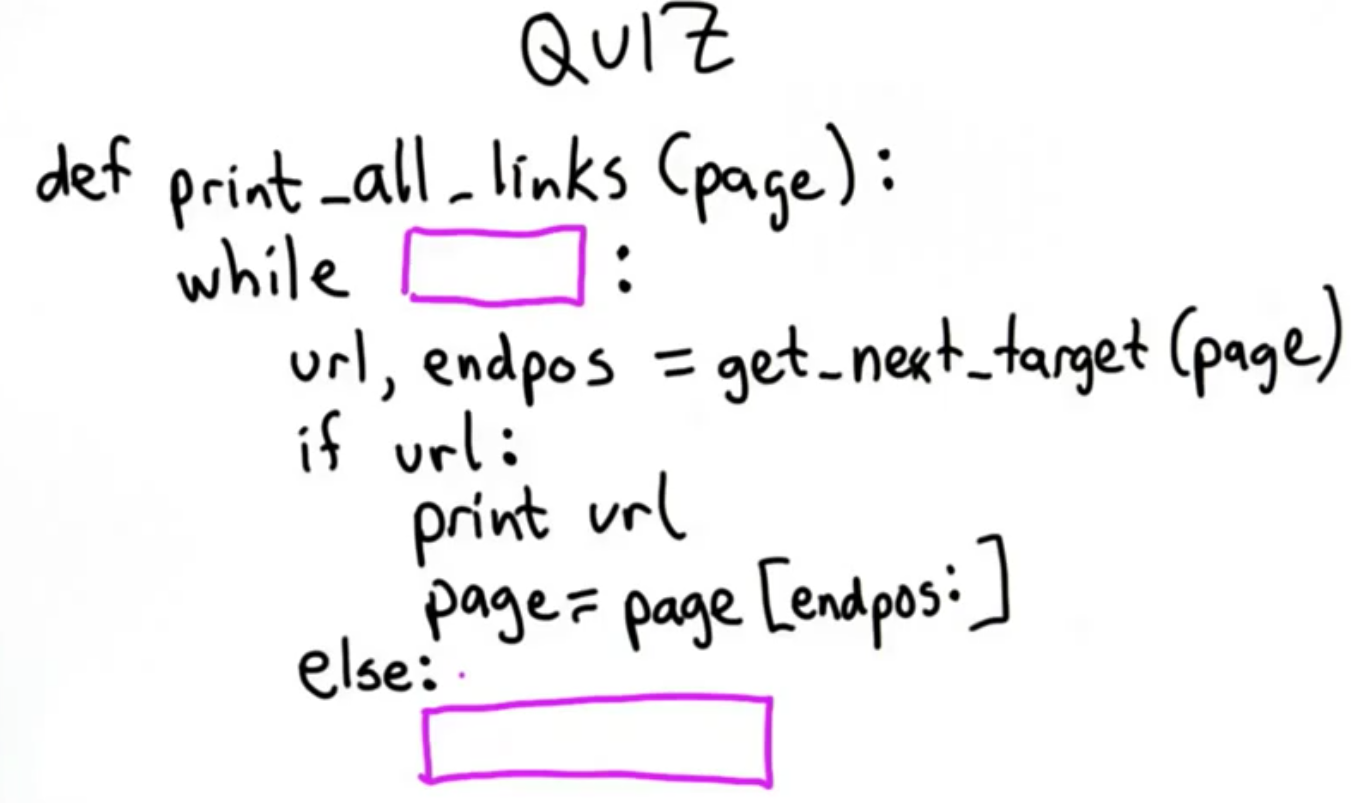 QUIZ
def print_all_links (page):
while :
url, endpos = get_next_target (page)
if url:
print url
page = page [endpos:]
else: